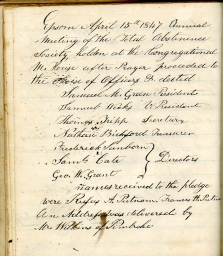 Upon April 15th 1847 Annual
Meeting of the Total Abstinence
Society holden at the Congregational
M. House after Prayer proceeded to
the Choise of Officers & elected
Samuel McGreen President
Samuel V President
Thomas Tripp Secretary
Bickford Treasurer
Frederick Sanborn
Saml Cate Directors
Geo. W. Grant
names received to the pledge
were Rufus A. Putnam, Francis
An delivered by
Mr Wilkins of Pembroke